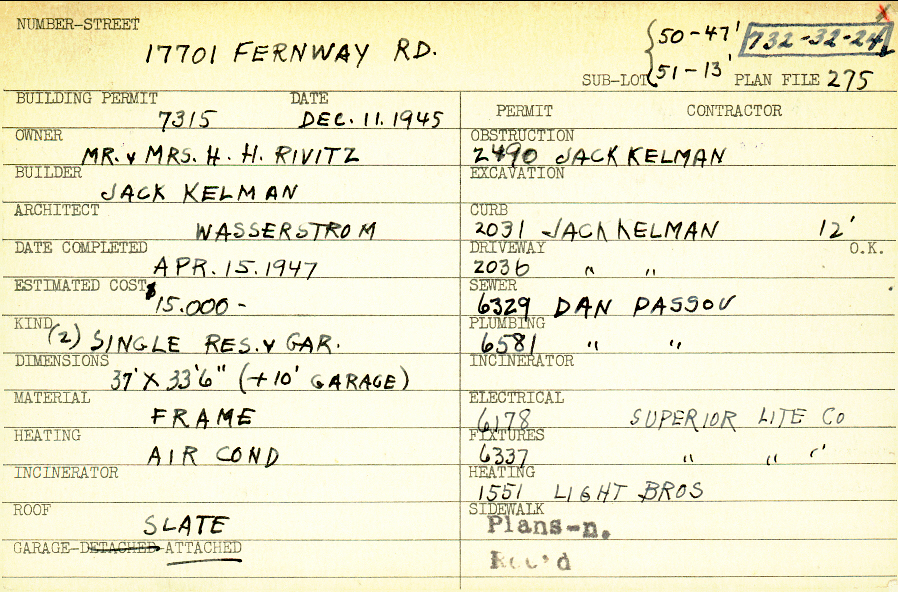 NUMBER-STREET
17701 FERNWAY RD.
50-47'
732-32-24
SUB-LOT 51-13' PLAN FILE 275
BUILDING PERMIT DATE
7315 DEC. 11. 1945
OWNER
MR. & MRS. H. H. RIVITZ
BUILDER
JACK KELMAN
ARCHITECT
WASSERSTROM
DATE COMPLETED
APR. 15. 1947
ESTIMATED COST
$15.000-
KIND
(2) SINGLE RES. & GAR.
DIMENSIONS
37' X 33'6" (+10' GARAGE)
MATERIAL
FRAME
HEATING
AIR COND
INCINERATOR
ROOF
SLATE
GARAGE-DETACHED-ATTACHED
PERMIT CONTRACTOR
OBSTRUCTION
2490 JACK KELMAN
EXCAVATION
CURB
2031 JACK KELMAN 12'
DRIVEWAY O.K.
2036 " "
SEWER
6329 DAN PASSOV
PLUMBING
6581 " "
INCINERATOR
ELECTRICAL
6178 SUPERIOR LITE CO
FIXTURES
6337 " " "
HEATING
1551 LIGHT BROS
SIDEWALK
Plans-n.
Rec'd